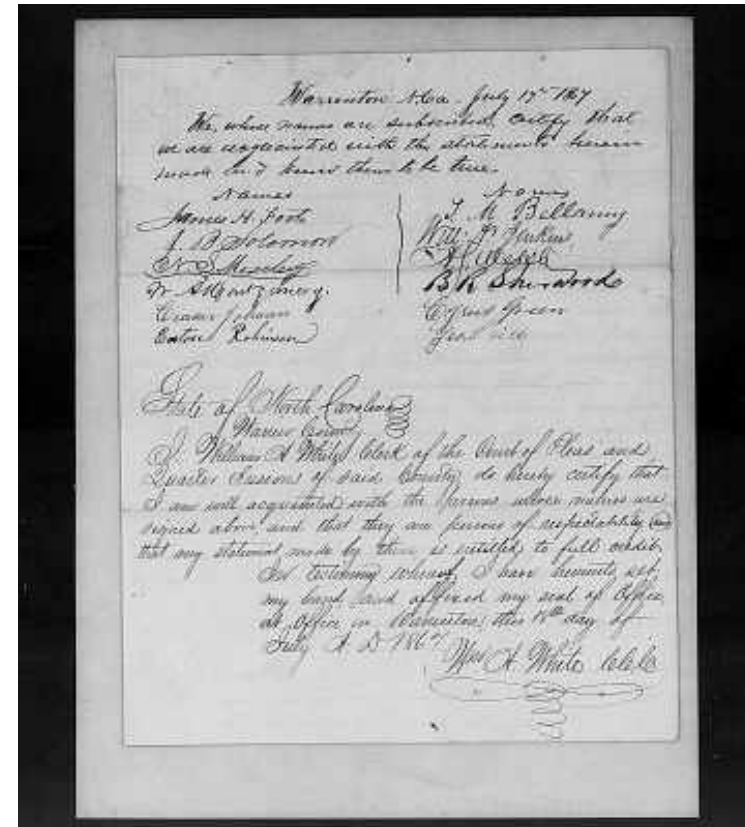 Warrenton N.Ca. July 17th 1867
We, whose names are subscribed, certify that
we are acquainted with the statements herein
made and know them to be true.
Names
James H. Foote
J. B. Solomon
W A Montgomery.
Johnson
Eaton Robinson
Names
T. M. Bellamy
Will P. Jenkins
B R Sherwood
Cyrus Green
State of North Carolina
Warren County
I William A White Clerk of the Court of Pleas and
Quarter Sessions of said County do hereby certify that
I am well acquainted with the persons whose names are
signed above and that they are persons of respectability and
that any statement made by them is entitled to full credit
In testimony whereof, I have hereunto set
my hand and affixed my seal of Office
at Office in Warrenton, this 18th day of
July A. D 1867
Wm A White C.C.C.